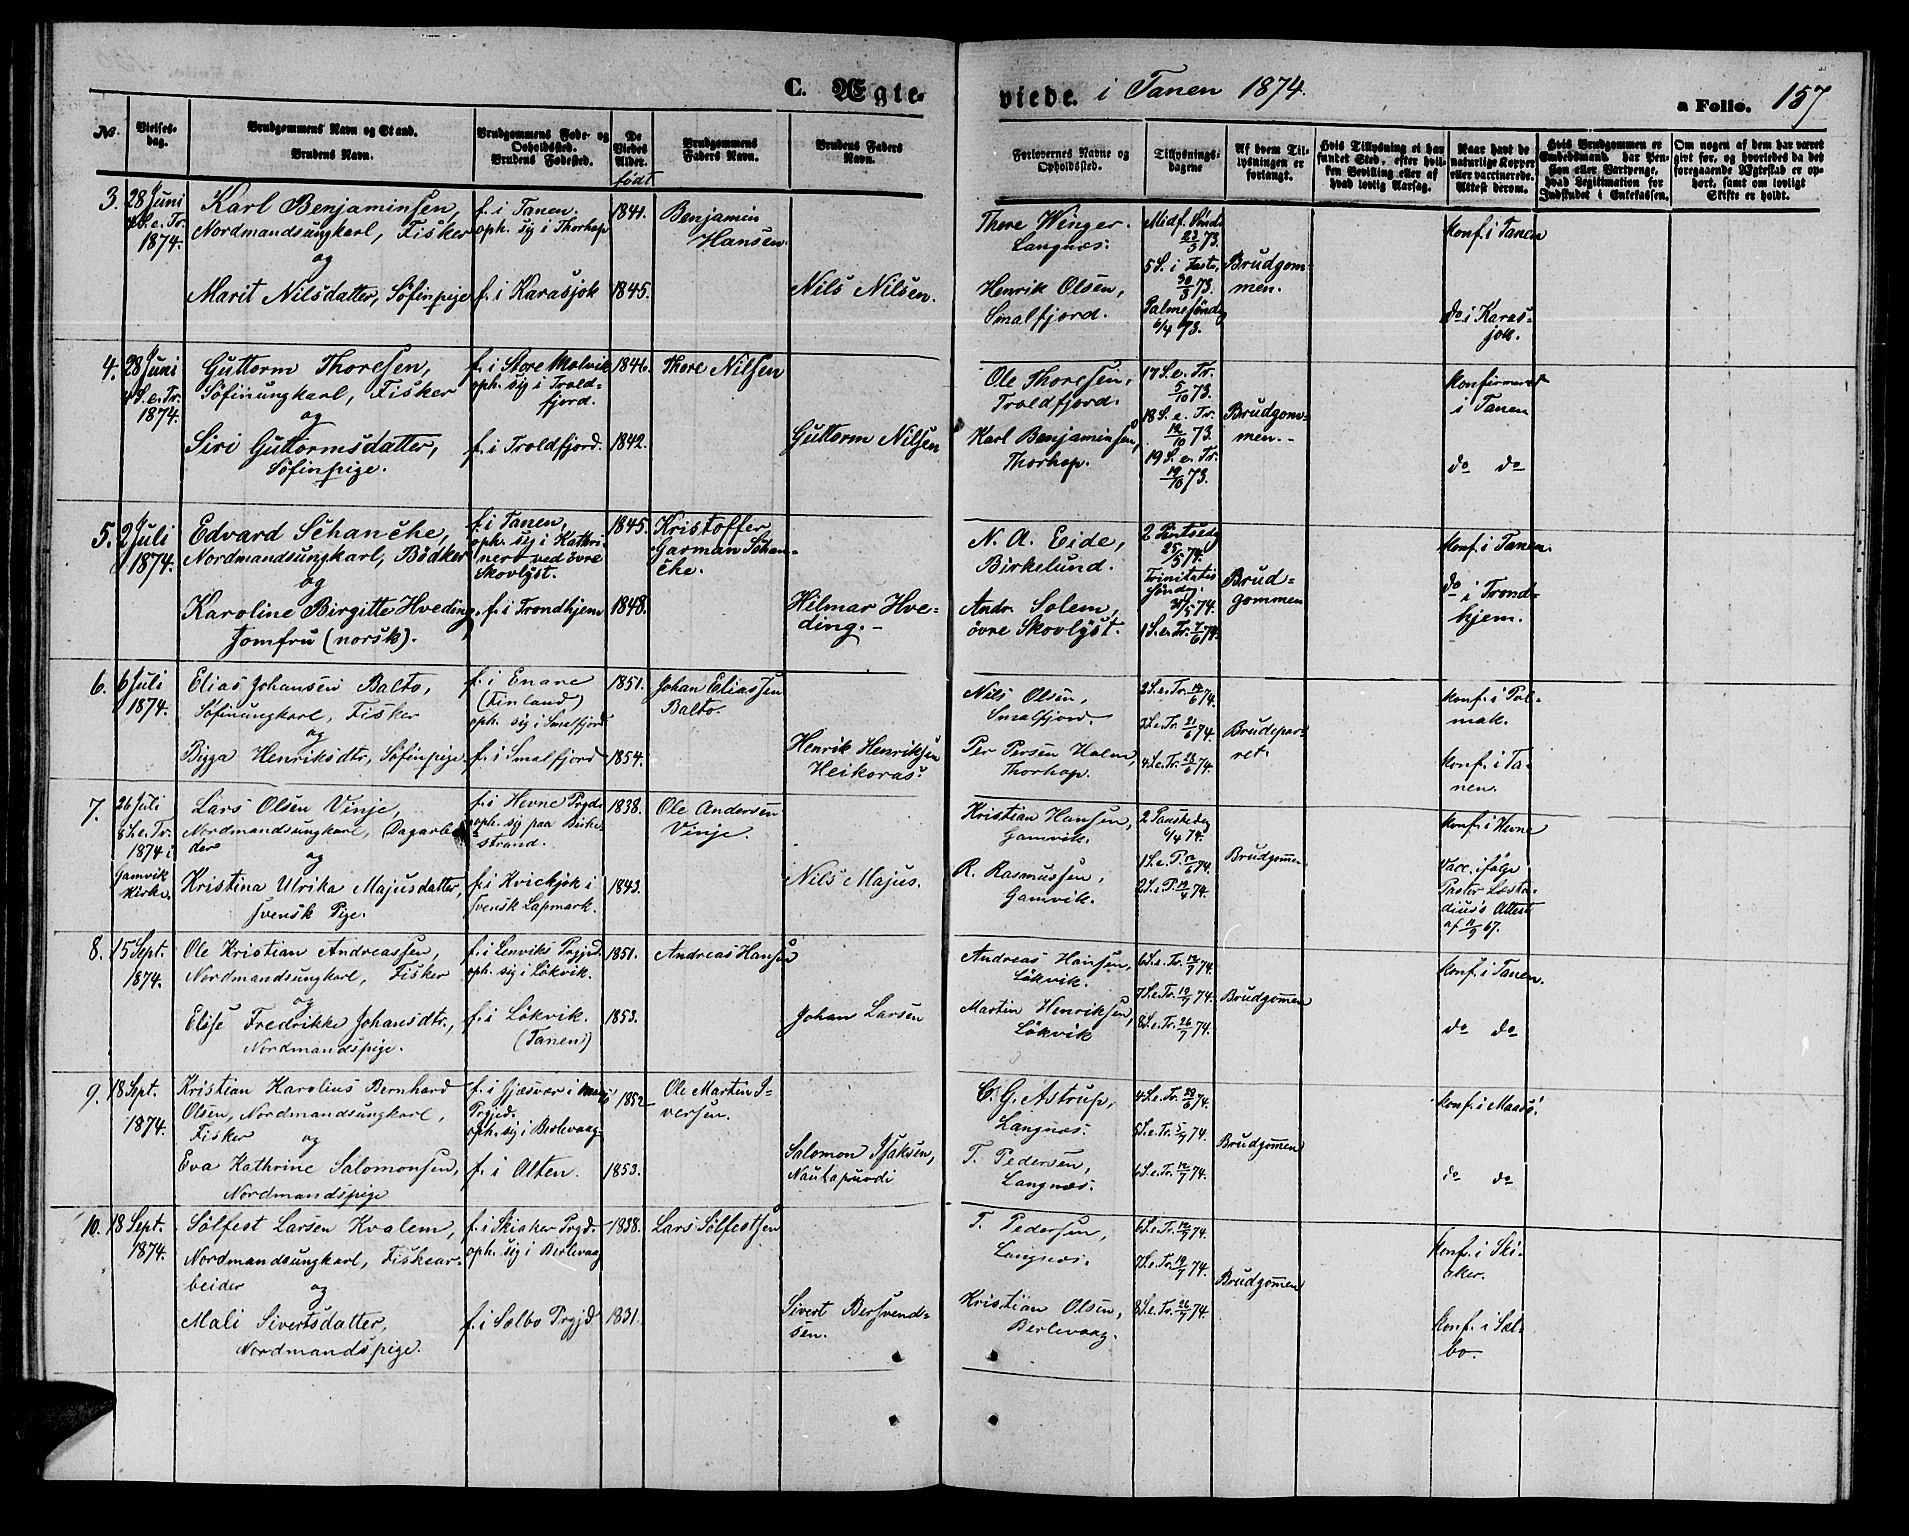 C. Ægte-
viede. i Tanen 1874.
a Folio. 157
No.
Vielses-
dag.
Brudgommens Navn og Stand.
Brudens Navn.
Brudgommens Føde- og
Opholdssted.
Brudens Fødested.
De
Viedes
Alder.
født
Brudgommens
Faders Navn.
Brudens Faders
Navn.
Forlovernes Navne og
Opholdssted.
Tillysnings-
dagene
Af hvem Til-
lysningen er
forlangt.
Hvis Tillysning ei har
fundet Sted, efter hvil-
ken Bevilling eller af
hvad lovlig Aarsag.
Naar havt de
naturlige Kopper
eller vaccinerede.
Attest derom.
Hvis Brudgommen er
Embedsmand, har Pen-
sion eller Vartpenge,
hvad Legitimation for
Indskudet i Enkekassen.
Om nogen af dem har været
gift før, og hvorledes da det
foregaaende Ægteskab er op-
hørt, samt om lovligt
Skifte er holdt.
3.
28 Juni
4 S. e. Tr.
1874.
Karl Benjaminsen,
Nordmandsungkarl, Fisker
og
Marit Nilsdatter, Søfinpige
f. i Tanen.
oph. sig i Thorhop
f. i Karasjok
1841.
1845.
Benjamin
Hansen.
Nils Nilsen.
Thore Winger.
Langnæs.
Henrik Olsen,
Smalfjord.
Midf. Sønd.
23/3 73.
5 S. i Faste,
30/3 73.
Palmesøndg
6/4 73.
Brudgom-
men.
Konf. i Tanen
do i Karas-
jok.
4.
28 Juni
4 S. e. Tr.
1874.
Guttorm Thoresen,
Søfinungkarl, Fisker
og
Siri Guttormsdatter,
Søfinpige.
f. i Store Molvik
oph. sig i Trold-
fjord.
f. i Troldfjord.
1846.
1842.
Thore Nilsen
Guttorm Nilsen
Ole Thoresen,
Troldfjord.
Karl Benjaminsen,
Thorhop.
17 S. e. Tr.
5/10 73.
18 S. e. Tr.
12/10 73.
19 S. e. Tr.
19/10 73.
Brudgom-
men.
Konfirmeret
i Tanen
do do
5.
2 Juli
1874.
Edvard Schanche,
Nordmandsungkarl, Bødker
og
Karoline Birgitte Hveding,
Jomfru (norsk).
f. i Tanen,
oph. sig i Kathri-
nero ved övre
Skovlyst.
f. i Trondhjem
1845.
1848.
Kristoffer
Garman Schan-
che.
Hilmar Hve-
ding.
N. A. Eide,
Birkelund.
Andr. Solem,
övre Skovlyst.
2 Pintsedg
25/5 74.
Trinitatis
Søndg.
31/5 74.
1 S. e. Tr. 7/6 74.
Brud-
gommen
Konf. i Tanen.
do i Trond-
hjem.
6.
6 Juli
1874.
Elias Johansen Balto,
Søfinungkarl, Fisker
og
Bigga Henriksdtr, Søfinpige
f. i Enare
(Finland)
oph. sig i Smalfjord
f. i Smalfjord
1851.
1854.
Johan Eliassen
Balto.
Henrik Henriksen
Heikoras.
Nils Olsen,
Smalfjord.
Per Persen Halm,
Thorhop.
2 S. e. Tr. 14/6 74.
3 S. e. Tr. 21/6 74.
4 S. e. Tr. 28/6 74.
Brudepar-
ret.
Konf. i Pol-
mak.
Konf. i Ta-
nen.
7.
26 Juli
8 S. e. Tr.
1874 i
Gamvik
Kirke.
Lars Olsen Vinje,
Nordmandsungkarl, Dagarbei-
der
og
Kristina Ulrika Majusdatter,
svensk Pige.
f. i Hevne Prgd.
oph. sig paa Birke-
strand.
f. i Kvickjok i
svensk Lapmark.
1838.
1843.
Ole Andersen
Vinje
Nils Majus.
Kristian Hansen,
Gamvik.
R. Rasmussen,
Gamvik.
2 Paaskedag
6/4 74.
1 S. e. P. 12/4 74.
2 S. e. P. 19/4 74.
Brudgomen
Konf. i Hevne
Vacc. ifølge
Pastor Læsta-
dius's Attest
8.
15 Sept.
1874.
Ole Kristian Andreassen,
Nordmandsungkarl, Fisker
og
Elise Fredrikke Johansdtr.,
Nordmandspige.
f. i Lenviks Prgjd.
oph. sig i Lökvik.
f. i Lökvik.
(Tanen)
1851.
1853.
Andreas Hansen
Johan Larsen
Andreas Hansen,
Lökvik.
Martin Henriksen,
Lökvik
6 S. e. Tr. 12/7 74.
7 S. e. Tr. 19/7 74.
8 S. e. Tr. 26/7 74.
Brudgomen
Konf. i Tanen.
do do
9.
18 Sept.
1874.
Kristian Karolius Bernhard
Olsen, Nordmandsungkarl,
Fisker og
Eva Kathrine Salomonsen,
Nordmandspige
f. i Gjæsvær i Maasø
Prgjd.
oph. sig i Berlevaag
f. i Alten.
1852
1853.
Ole Martin I-
versen.
Salomon Isaksen,
Nautapuodi
C. G. Astrup,
Langnæs.
T. Pedersen,
Langnæs.
4 S. e. Tr. 28/6 74.
5 S. e. Tr. 5/7 74.
6 S. e. Tr. 12/7 74.
Brudgomen
Konf. i Maasö
do do
10.
18 Sept.
1874.
Sølfest Larsen Kvalem,
Nordmandsungkarl, Fiskear-
beider og
Mali Sivertsdatter,
Nordmandspige.
f. i Skiaker Prgd.
oph. sig i Berlevaag
f. i Sælbo Prgjd
1838.
1831.
Lars Sölfestsen
Sivert Bersvend-
sen.
T. Pedersen,
Langnæs.
Kristian Olsen,
Berlevaag.
6 S. e. Tr. 12/7 74.
7 S. e. Tr. 19/7 74.
8 S. e. Tr. 26/7 74.
Brudgomen
Konf. i Ski-
aker.
Konf. i Sæl-
bo.